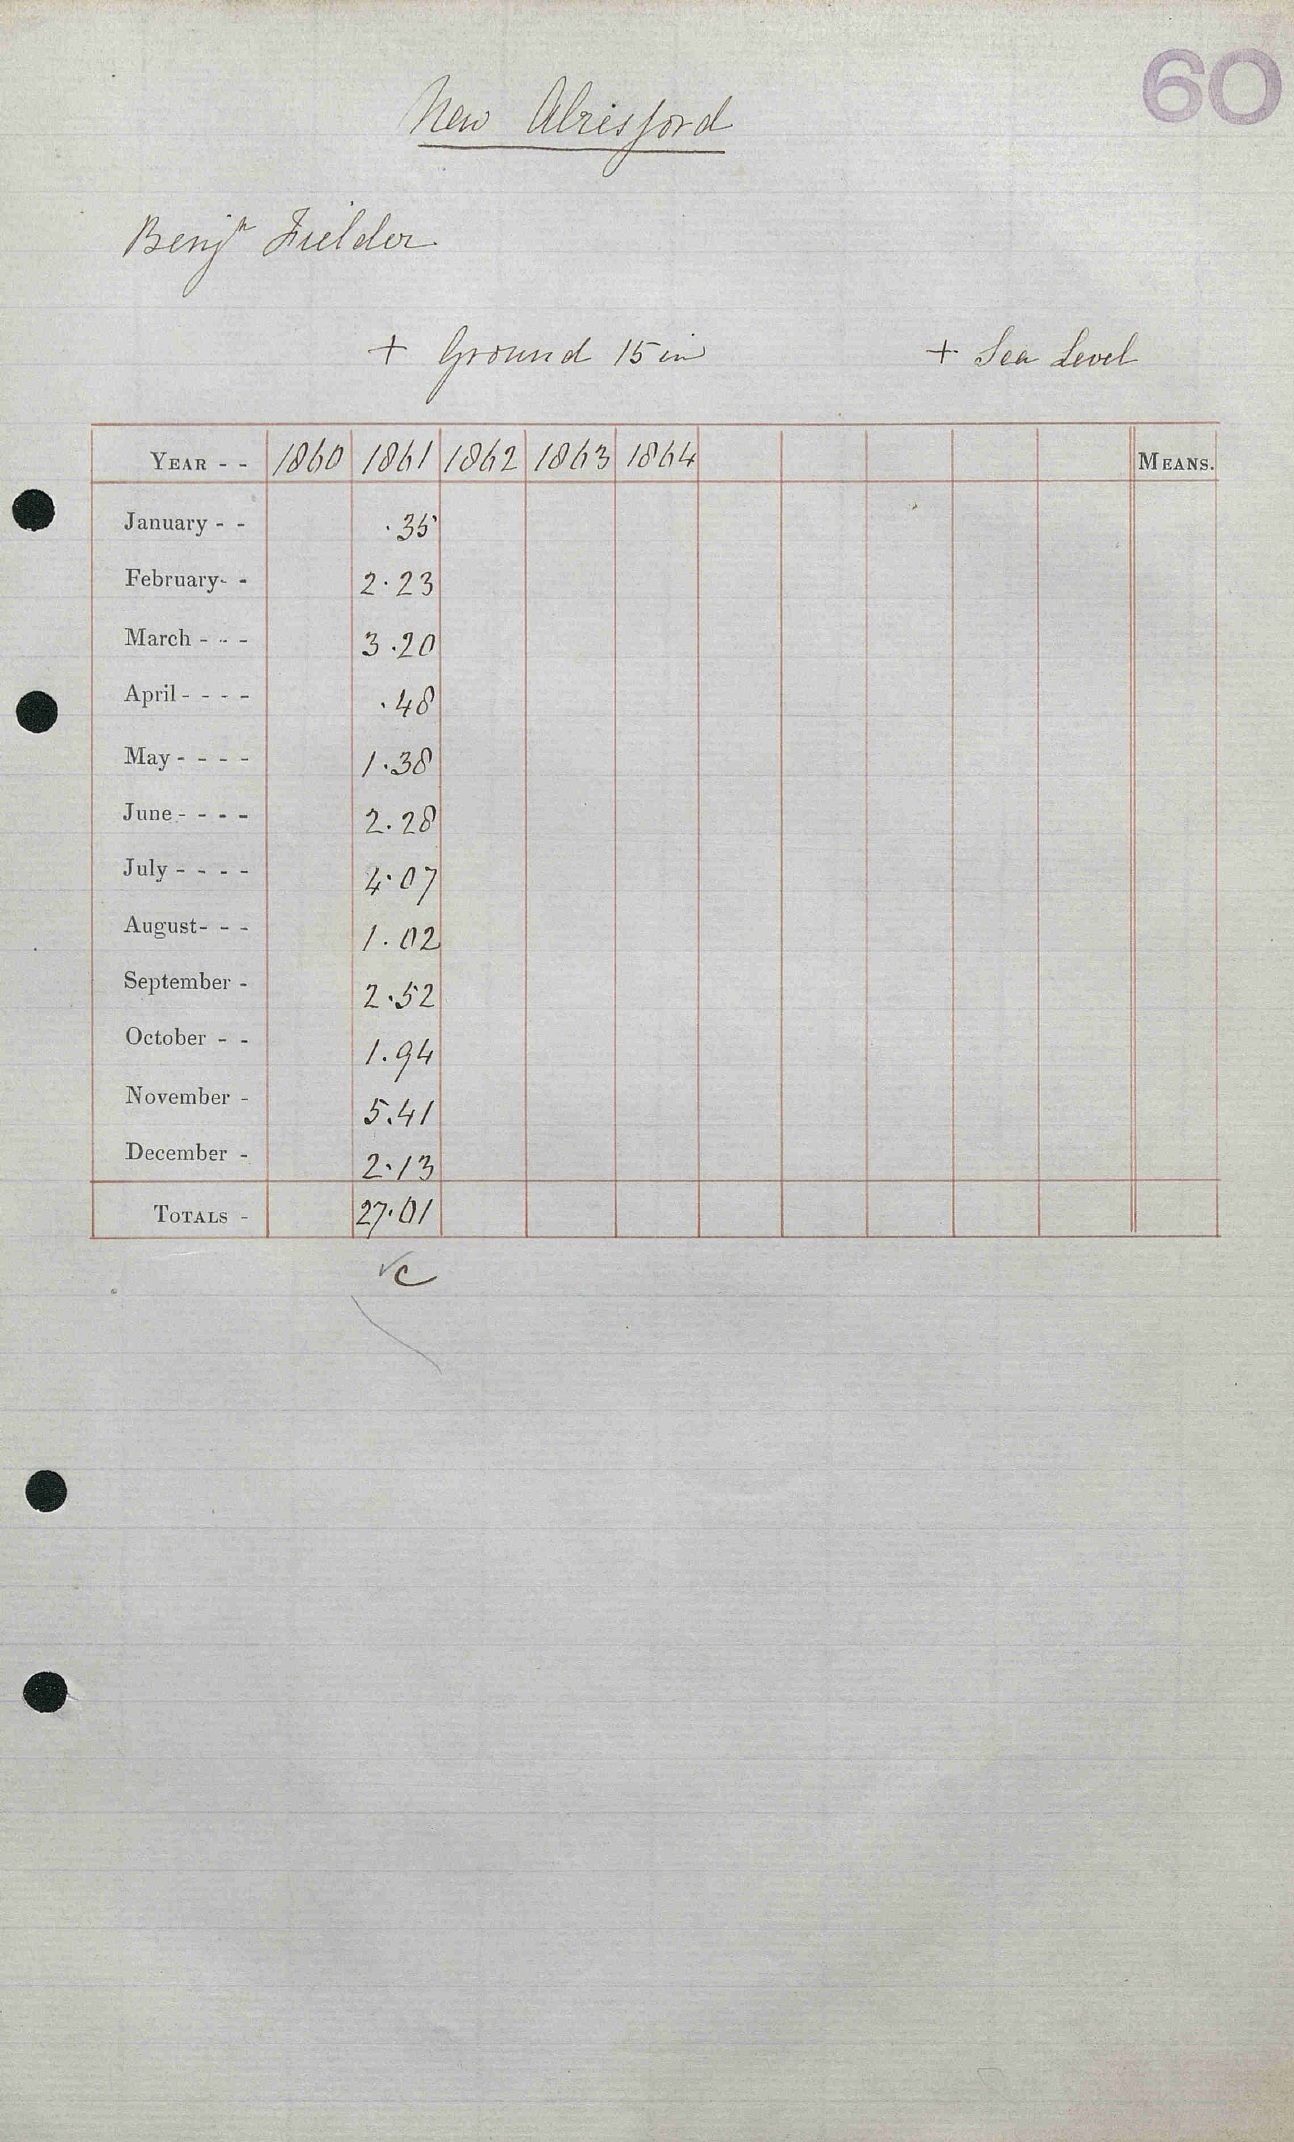 60
New Alresford
Benjn Fielder
+ Ground 15 in + Sea Level
YEAR - - 1860 1861 1862 1863 1864 MEANS.
January - - .35
February- - 2.23
March - - - 3.20
April - - - - .48
May - - - - 1.38
June - - - - 2.28
July - - - - 4.07
August- - - 1.02
September - 2.52
October - - 1.94
November - 5.41
December - 2.13
TOTALS - 27.01
✓c